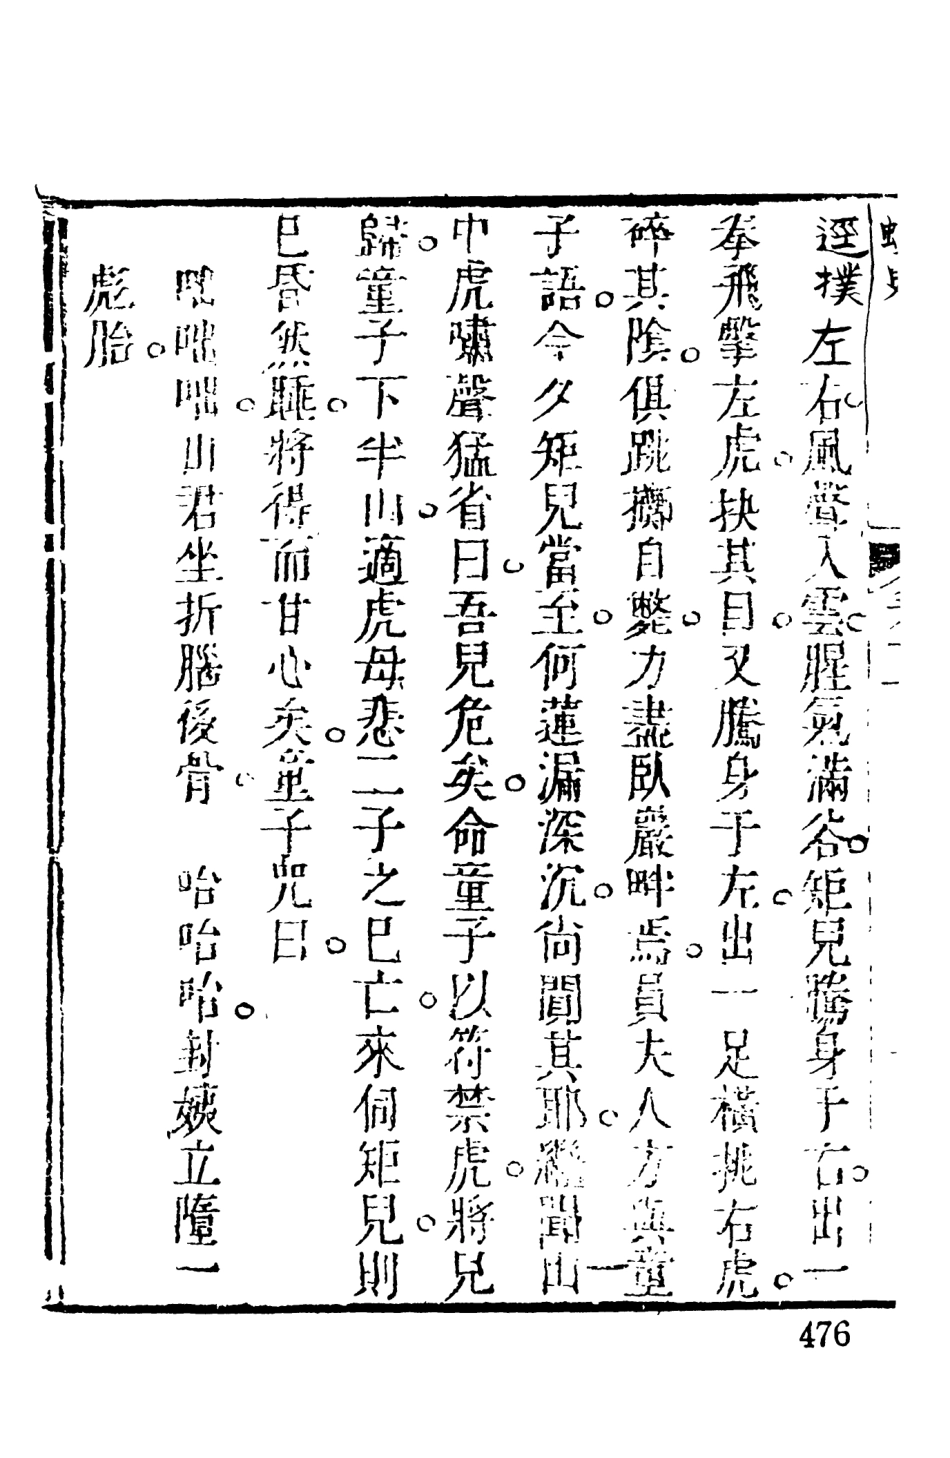 逕撲左右風聲入雲腥氣滿谷矩兒騰身于右出一
拳飛擊左虎抉其目又騰身于左出一足橫挑右虎
碎其陰俱跳擲自斃力盡臥巖畔焉員夫人方與童
子語今夕矩兒當至何蓮漏深沉尙聞其耶繼聞山
中虎嘯聲猛省曰吾兒危矣命童子以符禁虎將兒
歸童子下半山適虎母悲二子之已亡來伺矩兒則
已昏然睡將得而甘心矣童子咒曰
咄咄咄山君坐折腦後骨 咍咍咍封姨立墮一
彪胎
476